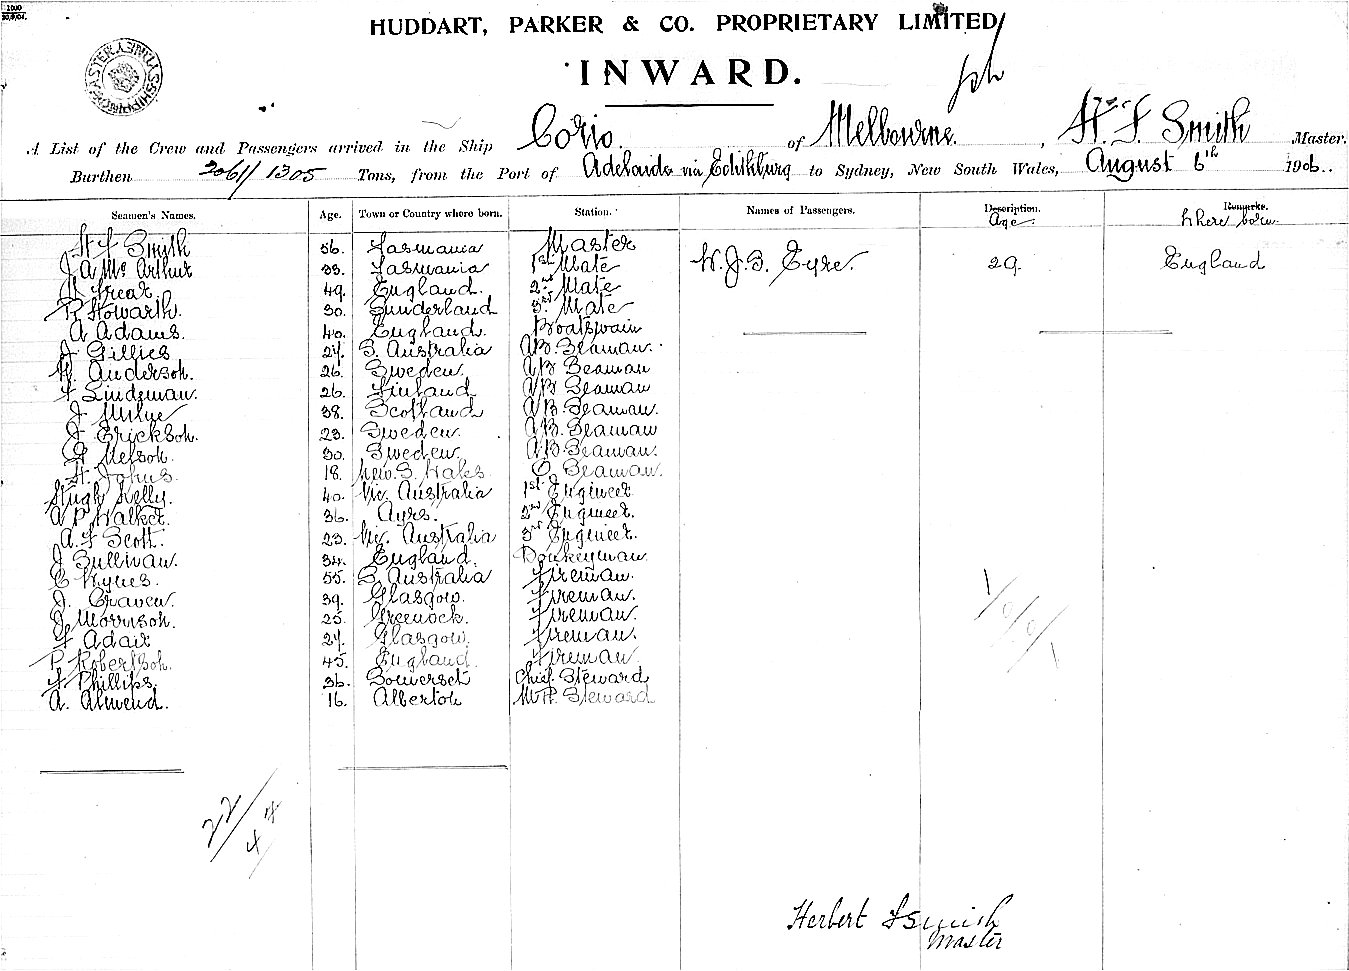 1000
30/9/04.
HUDDART, PARKER & CO. PROPRIETARY LIMITED
INWARD.
A List of the Crew and Passengers arrived in the Ship Corio. of Melbourne. , H. F. Smith Master.
Burthen 2061/1305 Tons, from the Port of Adelaide via Edithburg to Sydney, New South Wales, August 6th 1906..
Seamen's Names. Age. Town or Country where born. Station. Names of Passengers. Description. Remarks.
Age Where born
H F Smith 56. Tasmania Master
J A Mc Arthur 33. Tasmania 1st Mate W. J. B. Eyre. 29. England
49. England. 2nd Mate
R Howarth. 30. Sunderland 3rd Mate
A Adams. 40. England. Boatswain
J Gillies 27. S. Australia AB. Seaman.
W. Anderson. 26. Sweden. AB Seaman
F Lindeman. 26. Finland AB Seaman
J Milne 38. Scotland AB. Seaman.
J Erickson. 23. Sweden. AB. Seaman
G Nelson. 30. Sweden. AB. Seaman.
H. Johns. 18. New. S. Wales O. Seaman.
Hugh Kelly. 40. Vic. Australia 1st Engineer
A P Walker. 36. Ayrs. 2nd Engineer.
A. F Scott. 23. Vic. Australia 3rd Engineer.
J Sullivan. 34. England. Donkeyman
C Hynes. 55. S. Australia Fireman.
J. Craven. 39. Glasgow. Fireman.
J Morrison. 25. Greenock. Fireman.
F Adair 27. Glasgow. Fireman.
R Robertson. 45. England. Fireman
F Phillips. 36. Somerset Chief Steward
A. Almend. 16. Alberton Steward
22/
44
Herbert F Smith
Master